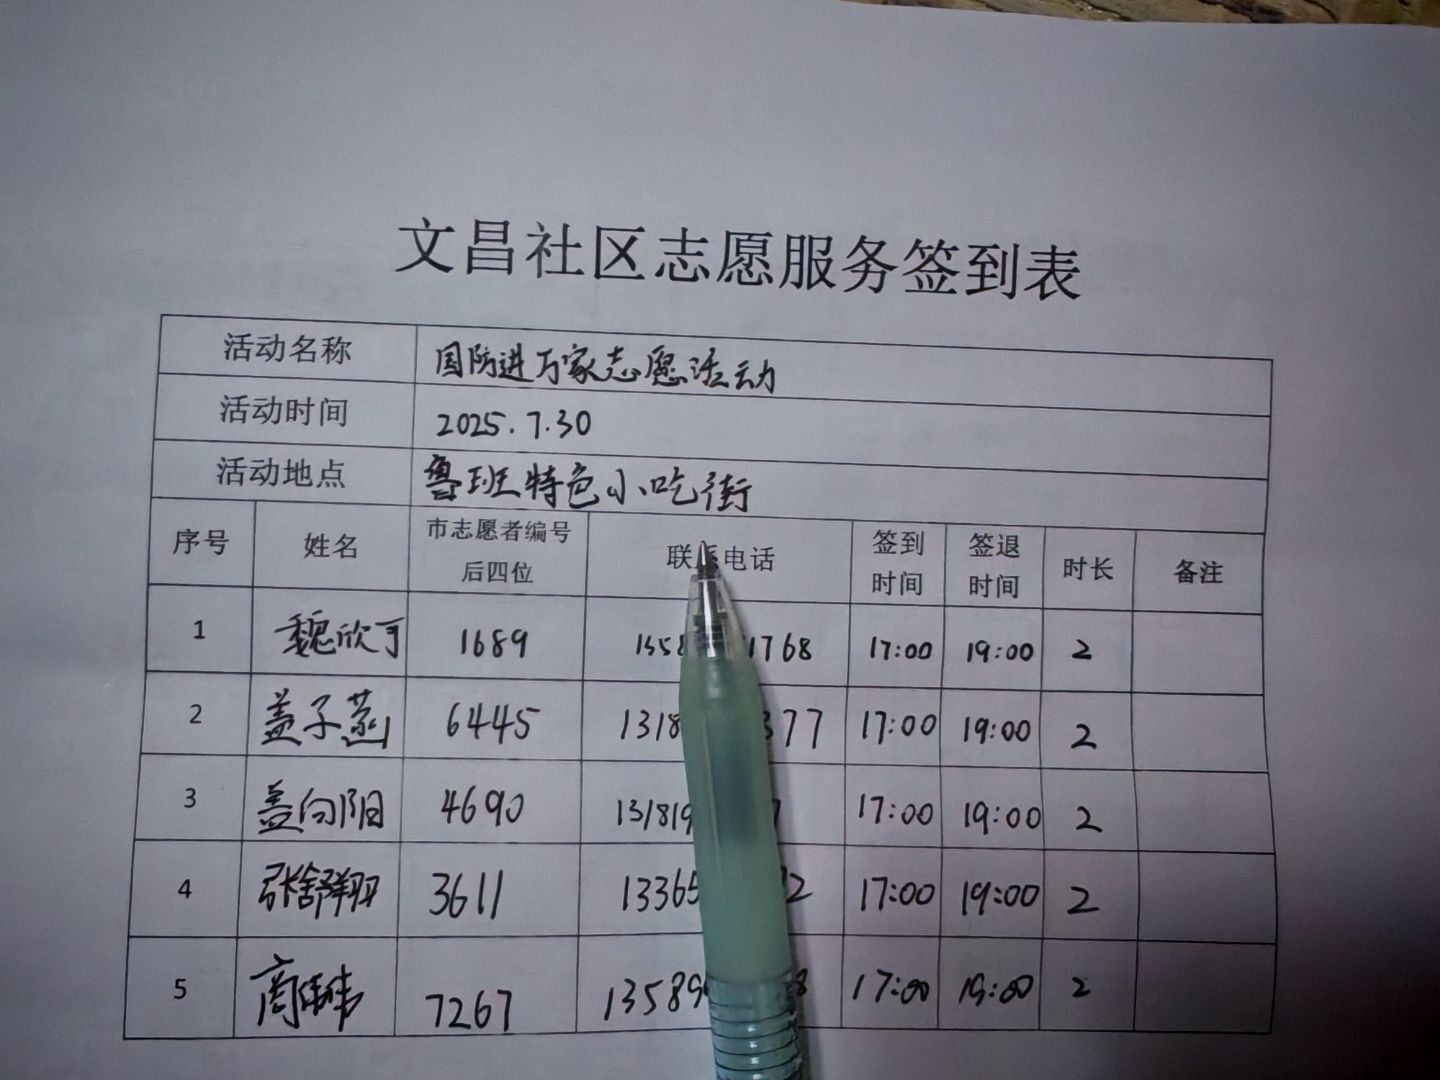 文昌社区志愿服务签到表
活动名称 国防进万家志愿活动
活动时间 2025.7.30
活动地点 鲁班特色小吃街
序号 姓名 市志愿者编号后四位 联 电话 签到时间 签退时间 时长 备注
1 魏欣可 1689 1358 1768 17:00 19:00 2
2 盖子燕 6445 1318 377 17:00 19:00 2
3 盖向阳 4690 131819 7 17:00 19:00 2
4 张舒翔 3611 13365 2 17:00 19:00 2
5 商 7267 13589 8 17:00 19:00 2